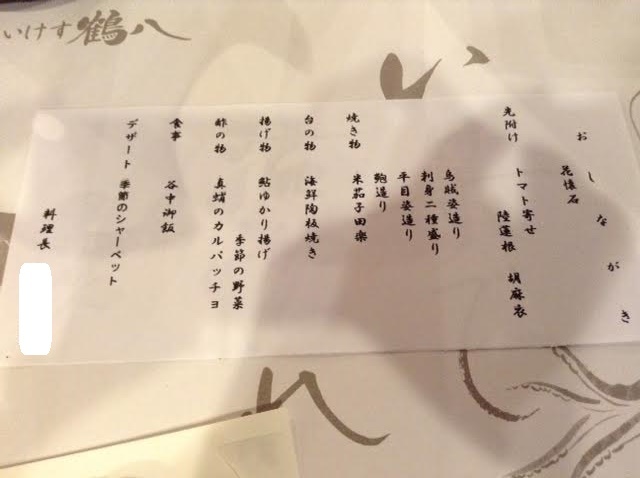 いけす鶴八
おしながき
花懐石
先附け トマト寄せ
陸蓮根 胡麻衣
烏賊姿造り
刺身二種盛り
平目姿造り
鮑造り
焼き物 米茄子田楽
台の物 海鮮陶板焼き
揚げ物 鮎ゆかり揚げ
季節の野菜
酢の物 真蛸のカルパッチョ
食事 谷中御飯
デザート 季節のシャーベット
料理長